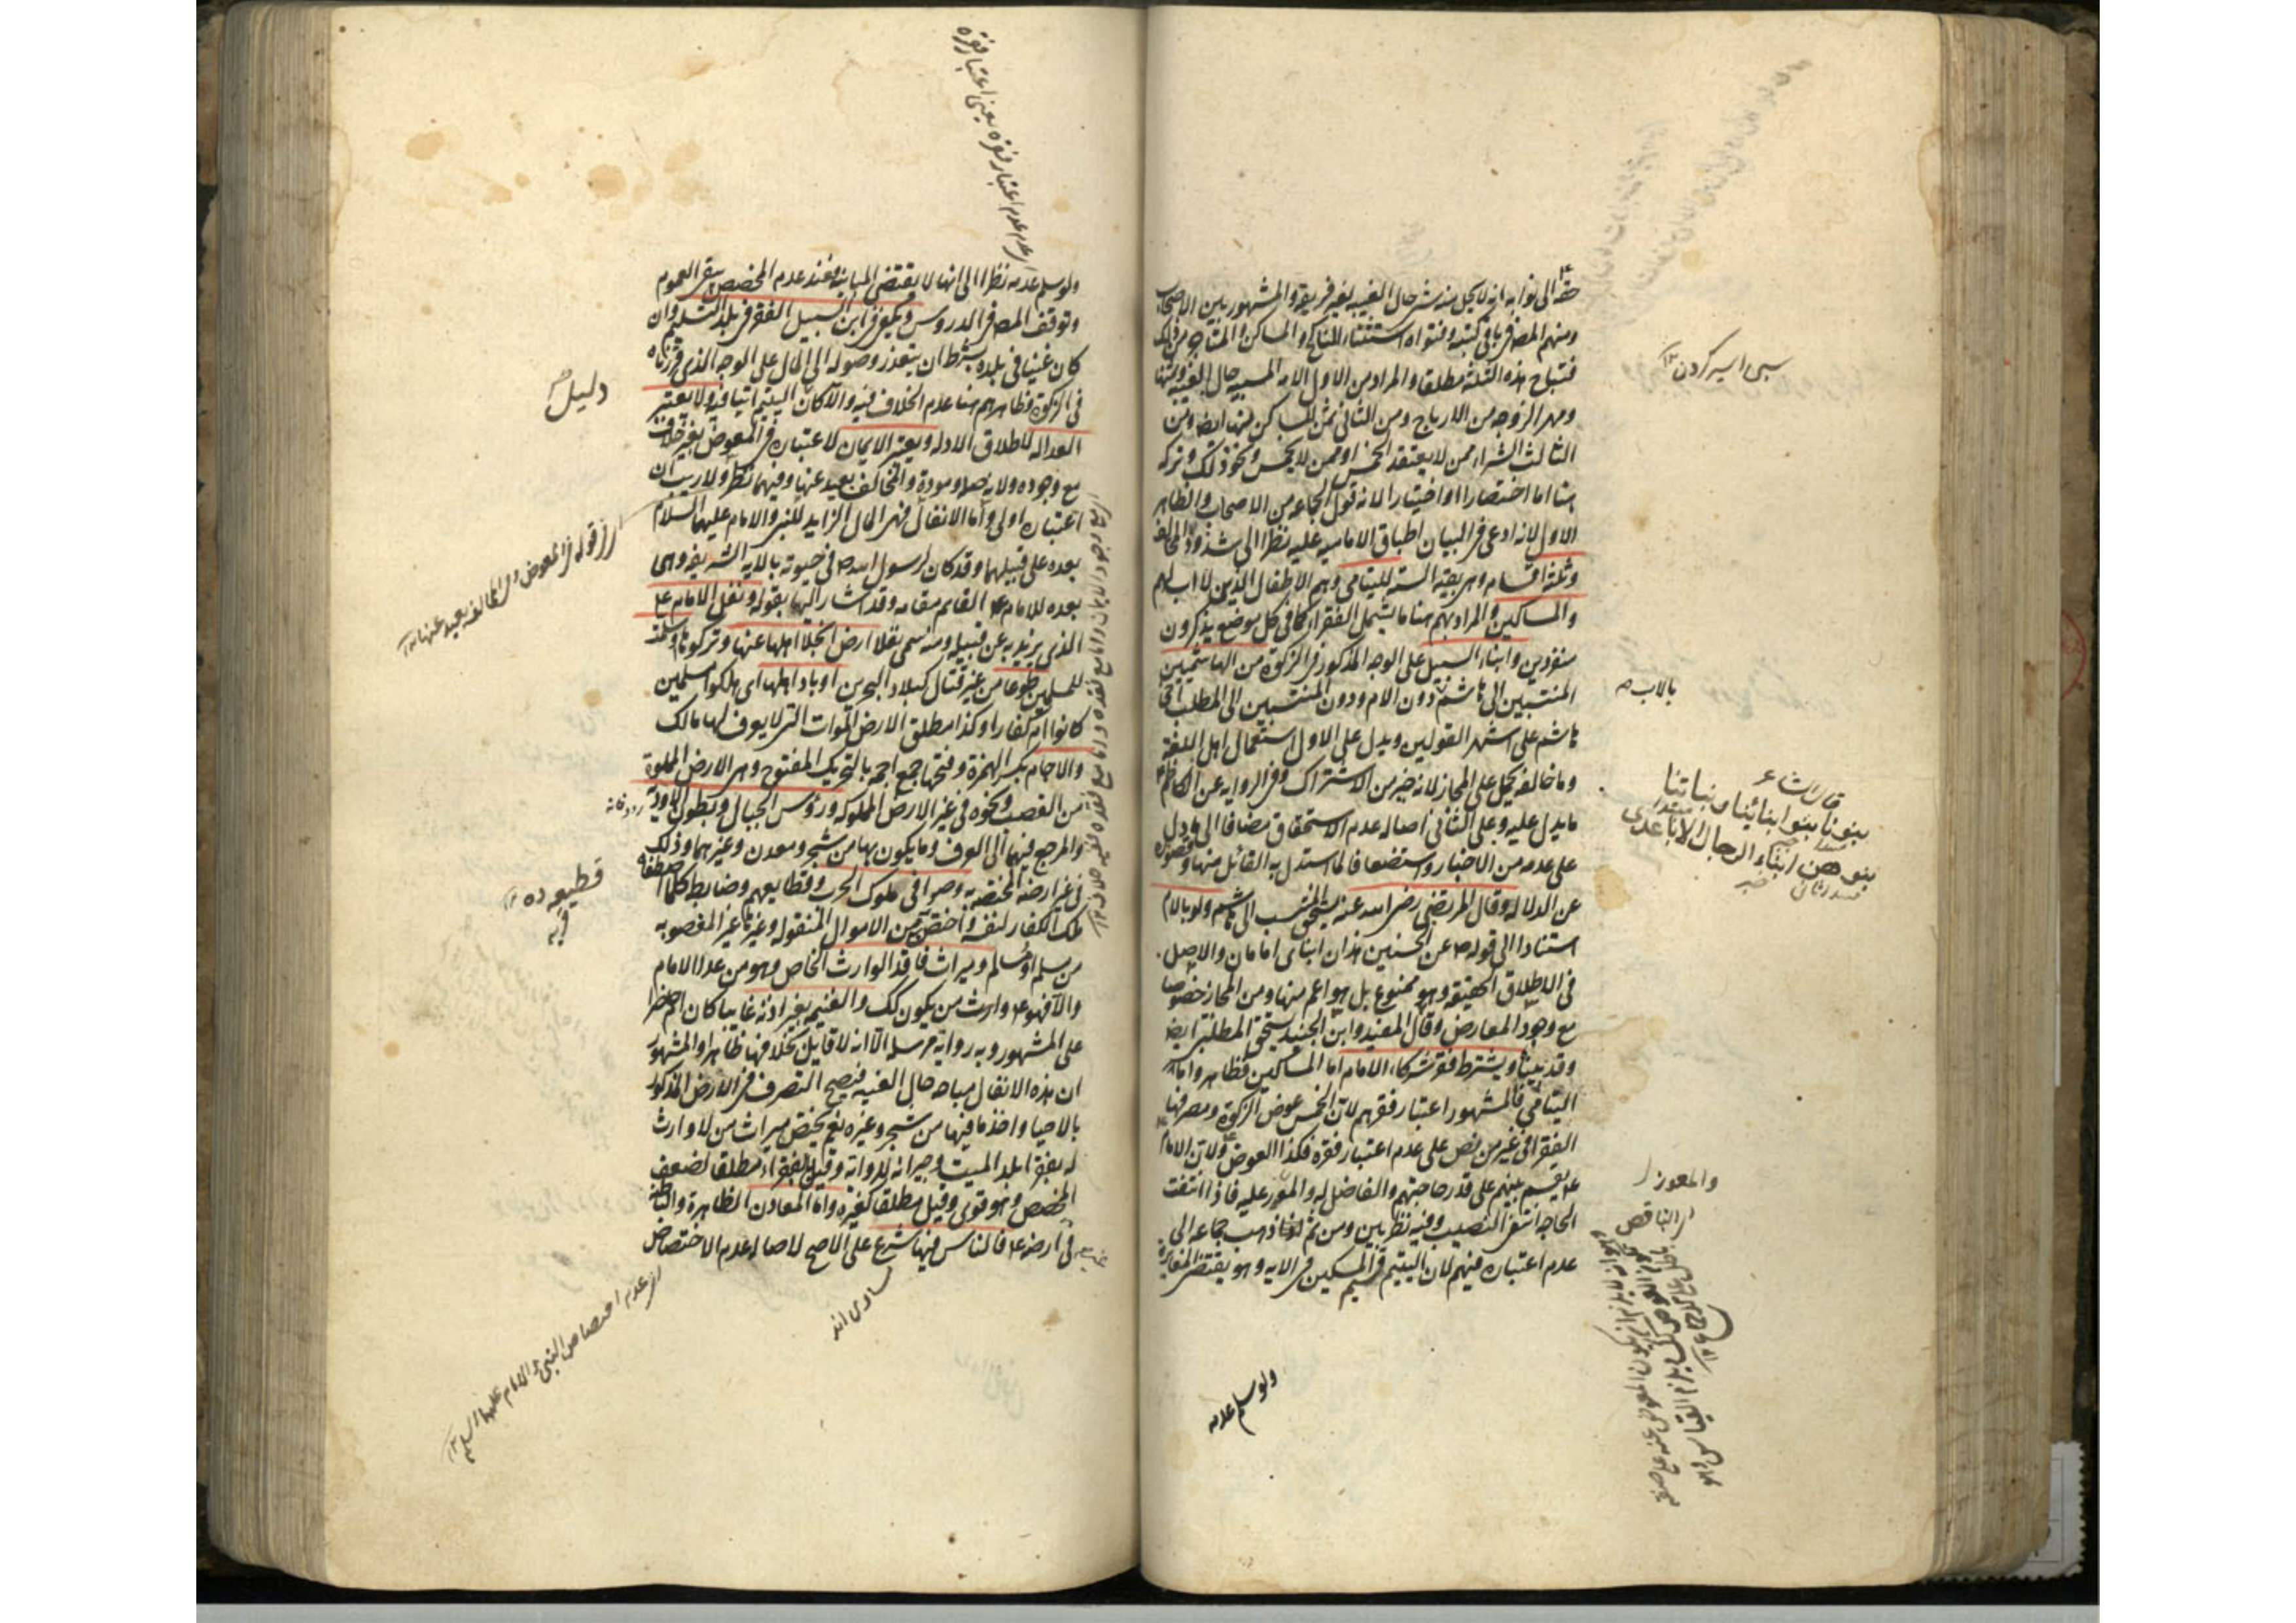 حقه الى نوابه انه لا يحل منه شئ حال الغيبة لغير فريقه والمشهور بين الاصحاب
ومنهم المصر فى باقى كتبه وفتواه استثناء المناكح والمساكن والمتاجر من ذلك
فتباح هذه الثلثة مطلقا والمراد من الاول الامة المسبية حال الغيبة وثمنها
ومهر الزوجة من الارباح ومن الثانى ثمن المسكن منها ايضا ومن
الثالث الشراء ممن لا يعتقد الخمس او ممن لا يخمس ونحو ذلك وتركه
هنا اما اختصارا او اختيارا لانه قول لجماعة من الاصحاب والظاهر
الاول لانه ادعى فى البيان اطباق الامامية عليه نظرا الى شذوذ المخالف
وثلثة اقسام وهى بقية الستة لليتامى وهم الاطفال الذين لا اب لهم
والمساكين والمراد بهم هنا ما يشمل الفقراء كما فى كل موضع يذكرون
منفردين وابناء السبيل على الوجه المذكور فى الزكوة من الهاشميين
المنتسبين الى هاشم دون الام ودون المنتسبين الى المطلب اخى
هاشم على اشهر القولين ويدل على الاول استعمال اهل اللغة
وما خالفه يحمل على المجاز لانه خير من الاشتراك وفى الرواية عن الكاظم
ما يدل عليه وعلى الثانى اصالة عدم الاستحقاق مضافا الى ما دل
على عدمه من الاخبار واستضعافا لما استدل به القائل منها وقصوره
عن الدلالة وقال المرتضى رضى الله عنه يستحق المنتسب الى هاشم ولو بالام
استنادا الى قوله ص عن الحسنين هذان ابناى امامان والاصل
فى الاطلاق الحقيقة وهو ممنوع بل هو اعم منها ومن المجاز خصوصا
مع وجود المعارض وقال المفيد وابن الجنيد يستحق المطلبى ايضا
وقد بيناه ويشترط فقر شركاء الامام اما المساكين فظاهر واما
اليتامى فالمشهور اعتبار فقرهم لان الخمس عوض الزكوة ومصرفها
الفقراء فى غير من نص على عدم اعتبار فقره فكذا العوض ولان الامام
ع يقسم بينهم على قدر حاجتهم والفاضل له والمعوز عليه فاذا انتفت
الحاجة انتفى النصيب وفيه نظر بين ومن ثم ذهب جماعة الى
عدم اعتباره فيهم لان اليتيم قسيم المسكين فى الاية وهو يقتضى المغايرة
ولو سلم عدمه
سبى اسير كردن ١٢
بالاب ص
قال الشاعر
بنونا بنو ابنائنا وبناتنا
بنوهن ابناء الرجال الاباعد
والمعوز
اى الناقص
ولو سلم عدمه نظرا الى انها لا يقتضى المباينة فعند عدم المخصص يبقى العموم
وتوقف المصر فى الدروس ويكفى فى ابن السبيل الفقر فى بلد التسليم وان
كان غنيا فى بلده بشرط ان يتعذر وصوله الى المال على الوجه الذى قررناه
فى الزكوة وظاهرهم هنا عدم الخلاف فيه والا كان اليتيم اتيا فيه ولا يعتبر
العدالة لاطلاق الادلة ويعتبر الايمان لاعتباره فى المعوض بغير خلاف
مع وجوده ولانه صلة ومودة والمخالف بعيد عنها وفيهما نظر ولا ريب ان
اعتباره اولى واما الانفال فهى المال الزايد للنبى والامام عليهما السلام
بعده على قبيلهما وقد كان لرسول الله ص فى حيوته بالاية الشريفة وهى
بعده للامام ع القائم مقامه وقد اشار اليها بقوله ونفل الامام ع
الذى يزيد به عن قبيله ومنه سمى نفلا ارض انجلا اهلها عنها وتركوها او سلمت
للمسلمين طوعا من غير قتال كبلاد البحرين او باد اهلها اى هلكوا مسلمين
كانوا ام كفارا وكذا مطلق الارض الموات التى لا يعرف لها مالك
والاجام بكسر الهمزة وفتحها جمع اجمة بالتحريك المفتوح وهى الارض المملوة
من القصب ونحوه فى غير الارض المملوكة ورؤس الجبال وبطون الاودية
والمرجع فيهما الى العرف وما يكون بها من شجر ومعدن وغيرهما وذلك
فى غير ارضه المختصة به وصوافى ملوك الحرب وقطايعهم وضابطه كلما اصطفاه
ملك الكفار لنفسه واختص به من الاموال المنقولة وغيرها غير المغصوبة
من مسلم او مسالم وميراث فاقد الوارث الخاص وهو من عدا الامام
والا فهو ع وارث من يكون كك والغنيمة بغير اذنه غايبا كان ام حاضرا
على المشهور وبه رواية مرسلة الا انه لا قايل بخلافها ظاهرا والمشهور
ان هذه الانفال مباحة حال الغيبة فيصح التصرف فى الارض المذكورة
بالاحيا واخذ ما فيها من شجر وغيره نعم يختص ميراث من لا وارث
له بفقراء بلد الميت وجيرانه للرواية وقيل بالفقراء مطلقا لضعف
المخصص وهو قوى وقيل مطلقا كغيره واما المعادن الظاهرة والباطنة
فى ارضه ع فالناس فيها شرع على الاصح لاصالة عدم الاختصاص
اى عدم اعتبار فقره يعنى اعتبار فقره
دليل
اى قوله فى المعوض والمخالف بعيد عنها ١٢
رودخانه
قطيعه ده ١٢
قريه
مساوى اند
اى عدم اختصاص النبى والامام عليهما السلام ١٢